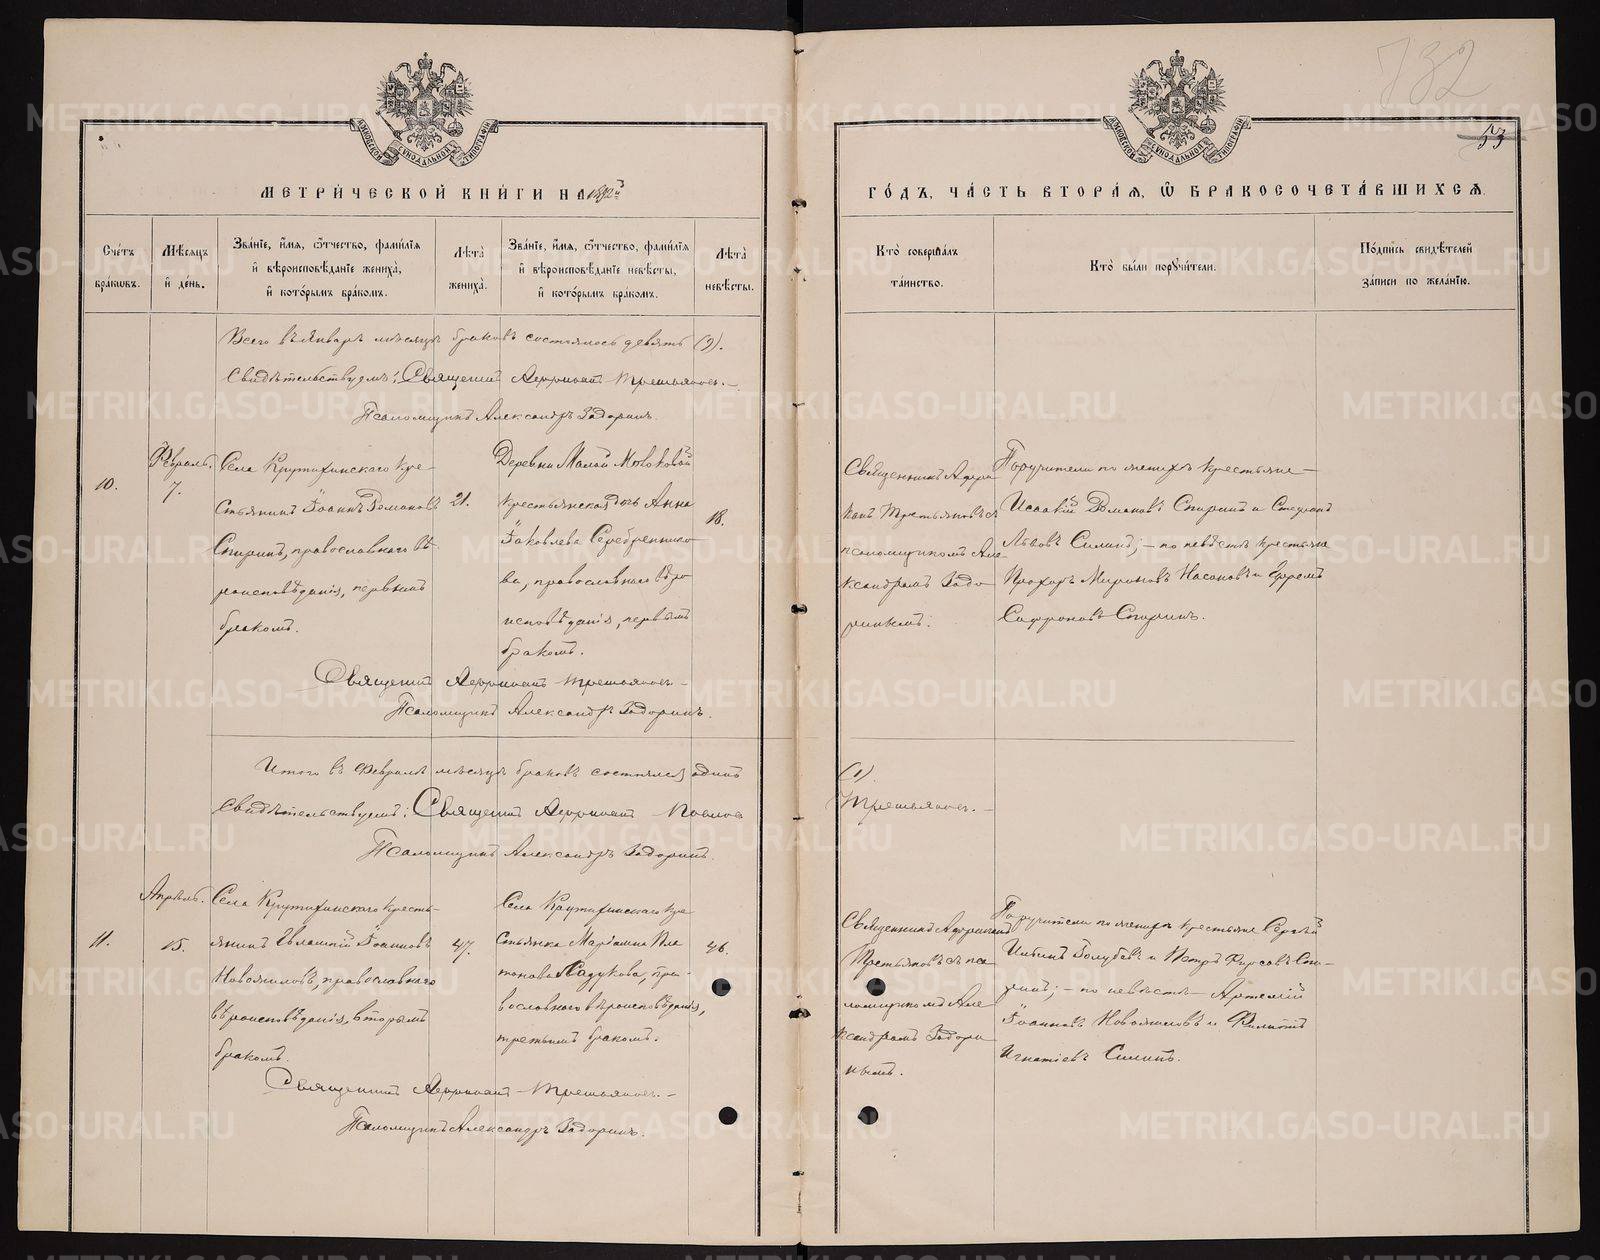 732
53
МЕТРИЧЕСКОЙ КНИГИ НА 1892й
ГОДЪ, ЧАСТЬ ВТОРАЯ, Ѡ БРАКОСОЧЕТАВШИХСЯ.
Счетъ браковъ.
Мѣсяцъ и день.
Званіе, имя, отчество, фамилія и вѣроисповѣданіе жениха, и которымъ бракомъ.
Лѣта жениха.
Званіе, имя, отчество, фамилія и вѣроисповѣданіе невѣсты, и которымъ бракомъ.
Лѣта невѣсты.
Кто совершалъ таинство.
Кто были поручители.
Подпись свидѣтелей записи по желанію.
Всего въ Январѣ мѣсяцѣ браковъ состоялось девять (9).
Свидѣтельствуемъ: Священникъ Африканъ Третьяковъ.
Псаломщикъ Александръ Задоринъ.
10.
Февраль.
7.
Села Крутихинскаго кре-
стьянинъ Іоаннъ Романовъ
Спиринъ, православнаго вѣ-
роисповѣданія, первымъ
бракомъ.
21.
Деревни Малой Моковой
крестьянская дочь Анна
Іаковлева Серебреннико-
ва, православнаго вѣро
исповѣданія, первымъ
бракомъ.
18.
Священникъ Афри
канъ Третьяковъ съ
псаломщикомъ Але-
ксандромъ Задо
ринымъ.
Поручители по женихѣ крестьяне
Исаакій Романовъ Спиринъ и Стефанъ
Львовъ Силинъ; - по невѣстѣ крестьяне
Прохоръ Мироновъ Насоновъ и Ефремъ
Сафроновъ Спиринъ.
Священникъ Африканъ Третьяковъ
Псаломщикъ Александръ Задоринъ.
Итого въ Февралѣ мѣсяцѣ браковъ состоялся одинъ
(1)
Свидѣтельствуемъ: Священникъ Африканъ Павловъ
Третьяковъ.
Псаломщикъ Александръ Задоринъ.
11.
Апрѣль.
15.
Села Крутихинскаго кресть-
янинъ Евлампій Іоанновъ
Новожиловъ, православнаго
вѣроисповѣданія, вторымъ
бракомъ.
47.
Села Крутихинскаго кре
стьянка Маріамна Пла
тонова Ладукова, пра-
вославнаго вѣроисповѣданія,
третьимъ бракомъ.
46.
Священникъ Африканъ
Третьяковъ съ пса
ломщикомъ Але
ксандромъ Задори
нымъ.
Поручители по женихѣ крестьяне Сергій
Голубевъ и Петръ Фирсовъ Спи-
ринъ; - по невѣстѣ Артемій
Іоанновъ Новожиловъ и Филиппъ
Игнатіевъ Силинъ.
Священникъ Африканъ Третьяковъ.
Псаломщикъ Александръ Задоринъ.